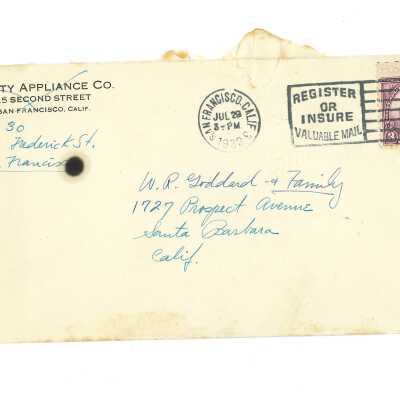 TY APPLIANCE CO.
5 SECOND STREET
SAN FRANCISCO, CALIF.
30
Frederick St.
Francisco
SAN FRANCISCO, CALIF.
JUL 29
3-PM
REGISTER
OR
INSURE
VALUABLE MAIL
W. R. Goddard & Family
1727 Prospect Avenue
Santa Barbara
Calif.